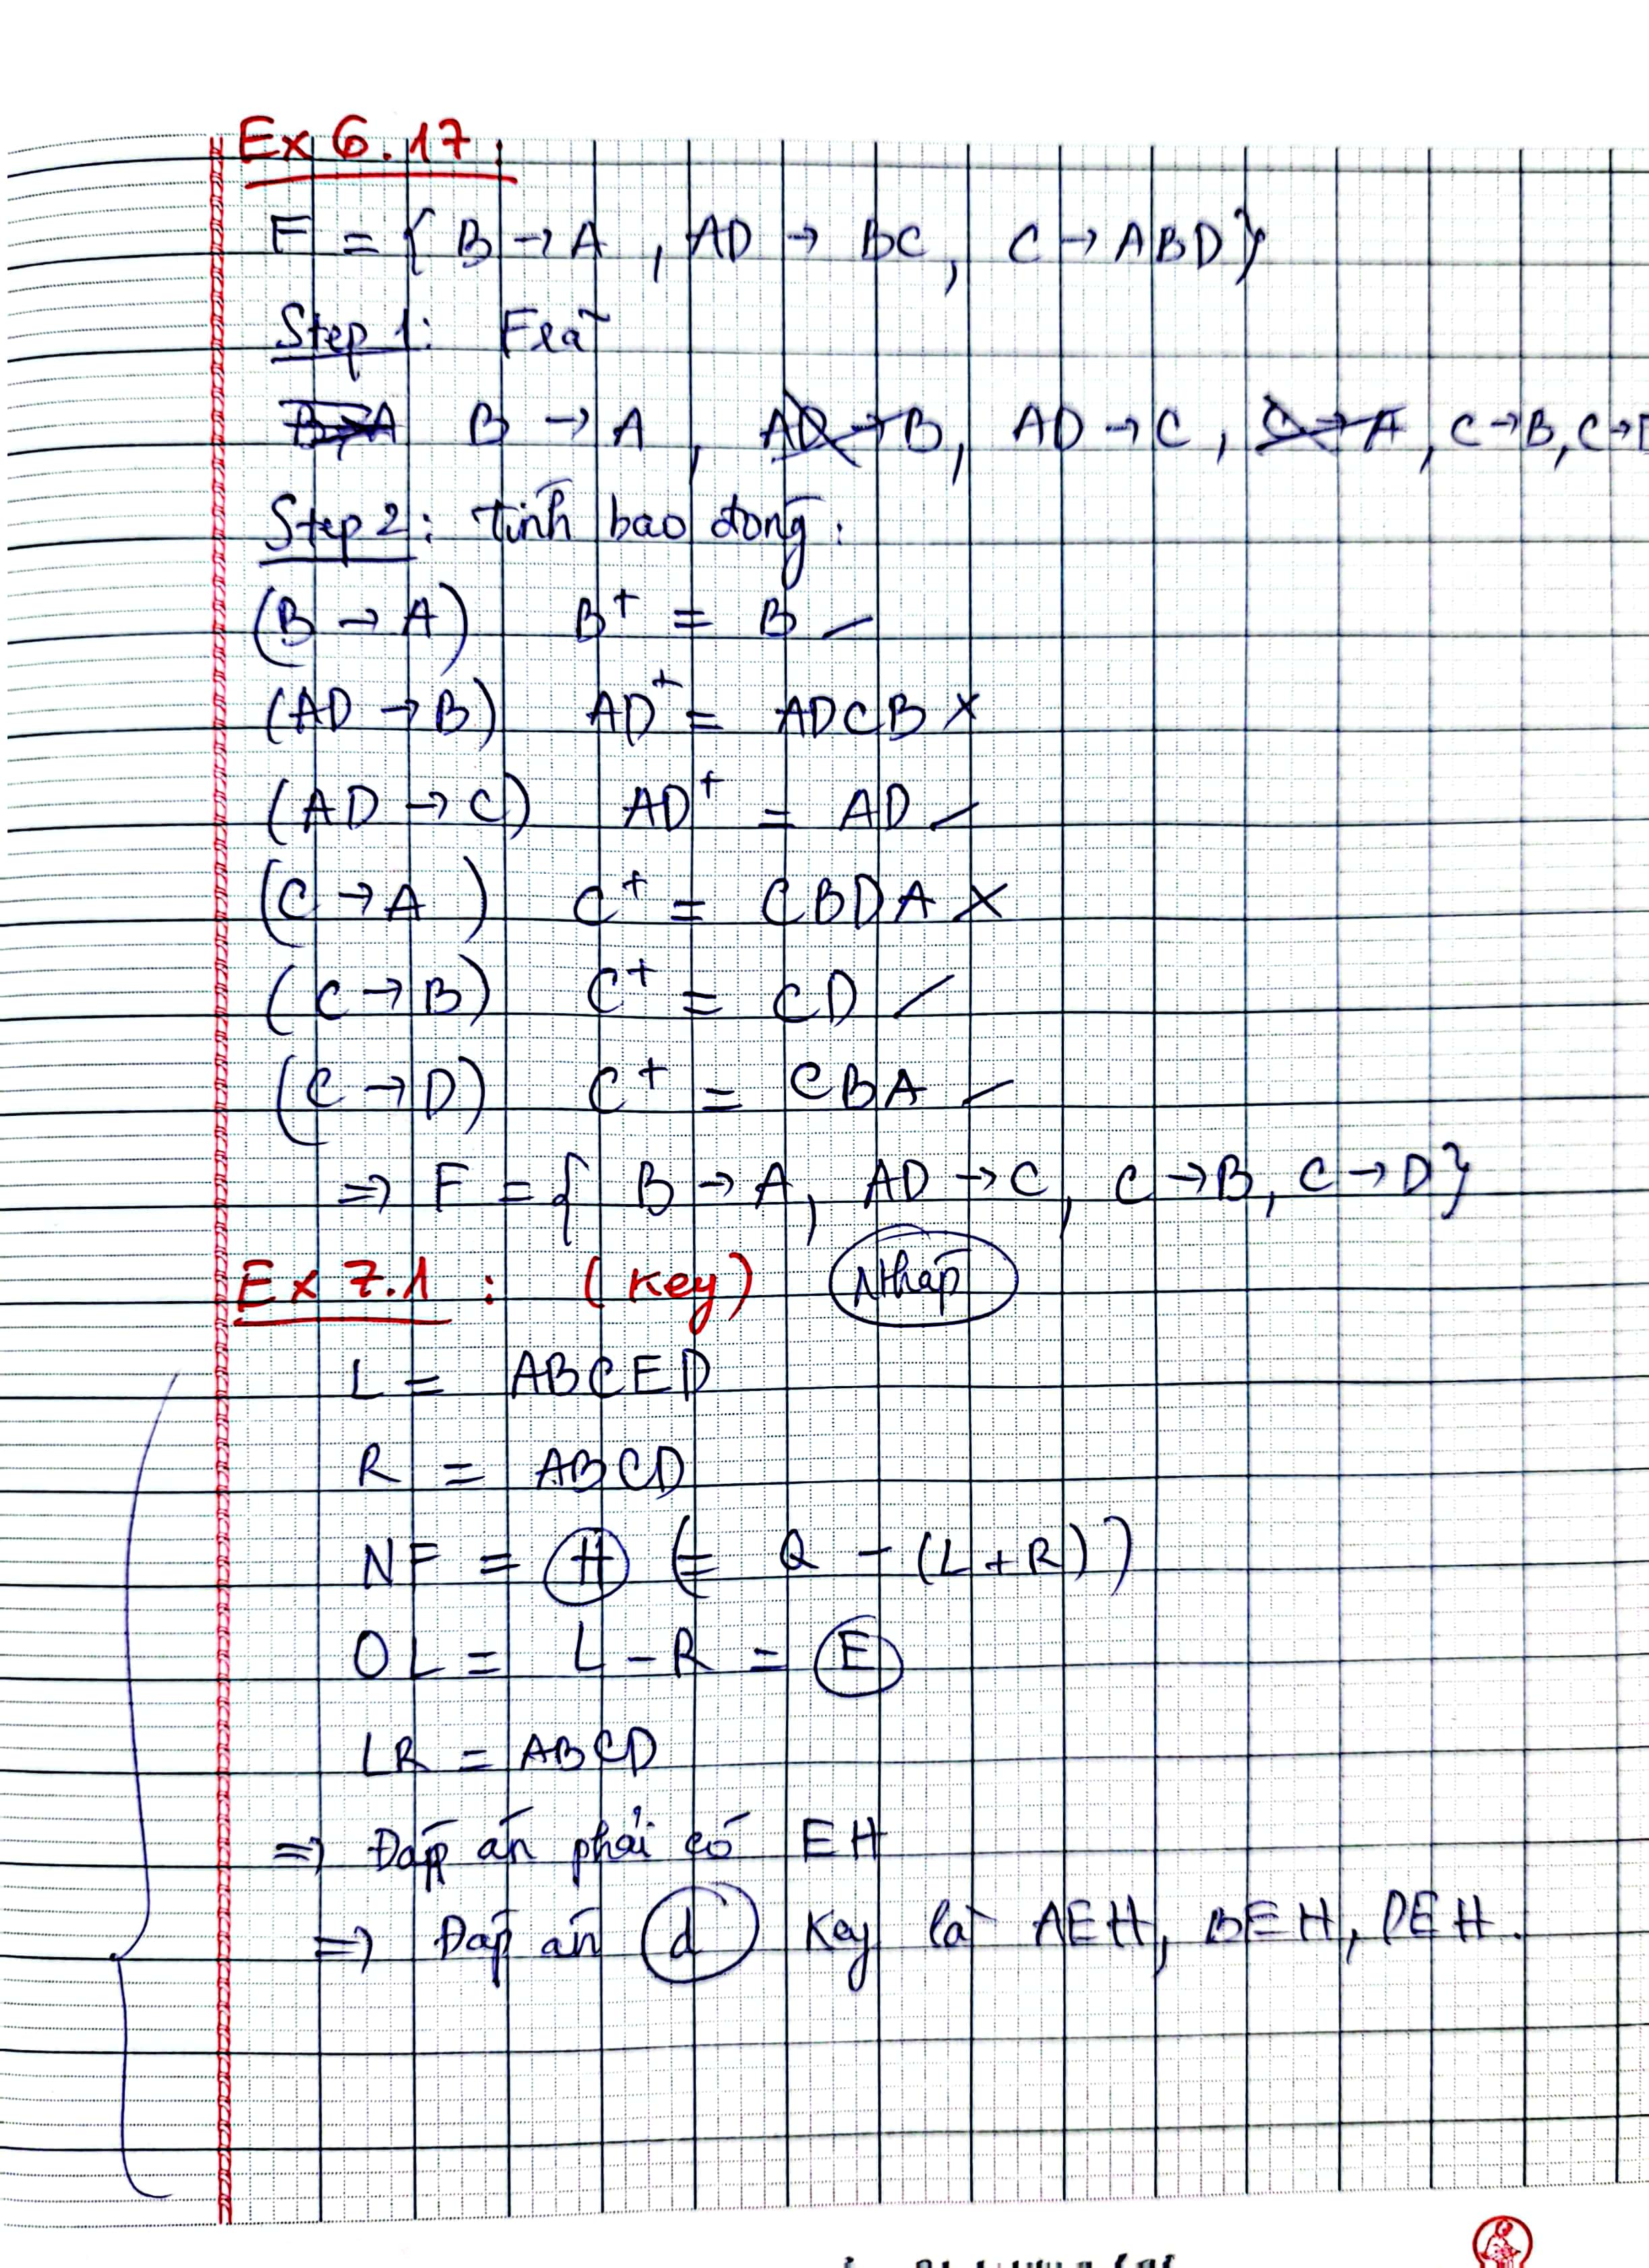 Ex 6.17:
F = { B → A , AD → BC, C → ABD}
Step 1: F rã
B → A B → A , AD → B, AD → C, C → A, C → B, C →
Step 2: tính bao đóng:
(B → A) B⁺ = B ✓
(AD → B) AD⁺ = ADCB X
(AD → C) AD⁺ = AD ✓
(C → A) C⁺ = CBDA X
(C → B) C⁺ = CD ✓
(C → D) C⁺ = CBA ✓
⇒ F = { B → A, AD → C, C → B, C → D}
Ex 7.1 : (Key) Nháp
L = ABCED
R = ABCD
NF = H (= Q - (L+R))
OL = L - R = E
LR = ABCD
⇒ Đáp án phải có EH
⇒ Đáp án d Key là AEH, BEH, DEH.